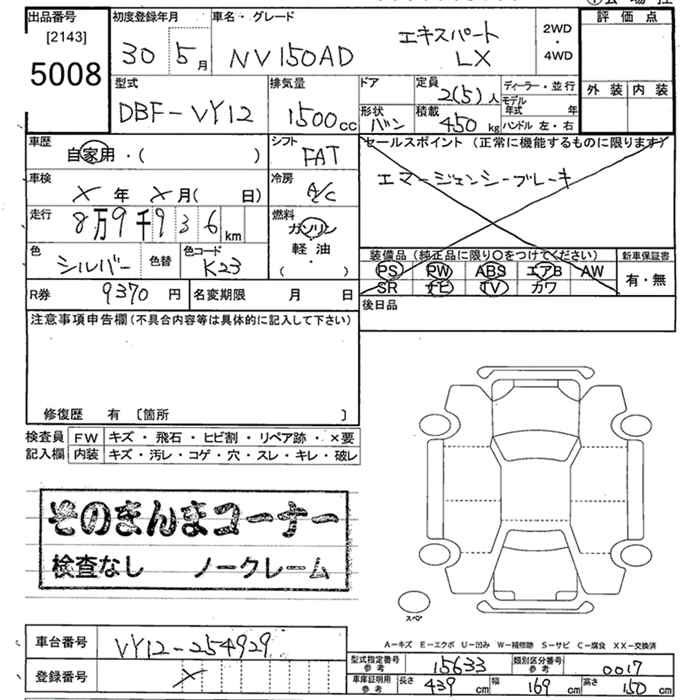 出品番号 初度登録年月 車名・グレード 評価点
[2143]
5008 30 5月 NV150AD エキスパート LX 2WD・4WD
外装 内装
型式 DBF-VY12 排気量 1500cc ドア 定員 2(5)人 ディーラー・並行
形状 バン 積載 450kg モデル年式 年
ハンドル 左・右
車歴 自家用・( ) シフト FAT
セールスポイント(正常に機能するものに限ります)
エマージェンシーブレーキ
車検 X年 X月( 日) 冷房 A/C
走行 8万9千936km 燃料 ガソリン・軽油・( )
色 シルバー 色替 色コード K23
装備品(純品に限り○をつけてください) 新車保証書
PS PW ABS エアB AW 有・無
SR ナビ TV カワ
R券 9370円 名変期限 月 日
後日品
注意事項申告欄(不具合内容等は具体的に記入して下さい)
修復歴 有 〔箇所 〕
検査員記入欄 FW キズ・飛石・ヒビ割・リペア跡・×要
内装 キズ・汚レ・コゲ・穴・スレ・キレ・破レ
そのまんまコーナー
検査なし ノークレーム
スペア
A-キズ E-エクボ U-凹み W-補修跡 S-サビ C-腐食 XX-交換済
車台番号 VY12-254929
登録番号 X
型式指定番号 参考 15633 類別区分番号 参考 0017
車庫証明用 参考 長さ 439cm 幅 169cm 高さ 150cm